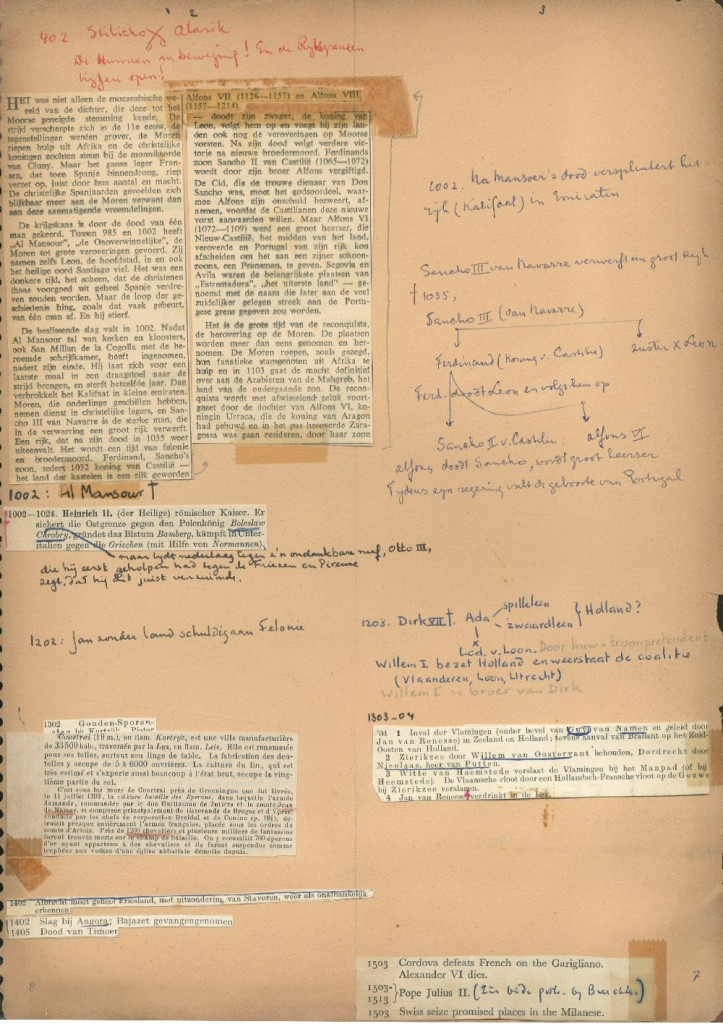 1 2
3
402 Stilicho X Alarik
De Hunnen in beweging! En de Rijksgrenzen
liggen open!
HET was niet alleen de mozarabische we-
reld van de dichter, die deze tot het
Moorse geneigde stemming kende. De
strijd verscherpte zich in de 11e eeuw, de
tegenstellingen werden grover, de Moren
riepen hulp uit Afrika en de christelijke
koningen zochten steun bij de monnikorde
van Cluny. Maar het ganse leger Fran-
sen, dat toen Spanje binnendrong, riep
verzet op, juist door hun aantal en macht.
De christelijke Spanjaarden gevoelden zich
blijkbaar meer aan de Moren verwant dan
aan deze aanmatigende vreemdelingen.
De krijgskans is door de dood van één
man gekeerd. Tussen 985 en 1002 heeft
„Al Mansour”, „de Onoverwinnelijke”, de
Moren tot grote veroveringen gevoerd. Zij
namen zelfs Leon, de hoofdstad, in en ook
het heilige oord Santiago viel. Het was een
donkere tijd, het scheen, dat de christenen
thans voorgoed uit geheel Spanje verdre-
ven zouden worden. Maar de loop der ge-
schiedenis hing, zoals dat vaak gebeurt,
van één man af. En hij stierf.
De beslissende slag valt in 1002. Nadat
Al Mansour tal van kerken en kloosters,
ook San Millan de la Cogolla met de be-
roemde schrijfkamer, heeft ingenomen,
nadert zijn einde. Hij laat zich voor een
laatste maal in een draagstoel naar de
strijd brengen, en sterft hetzelfde jaar. Dan
verbrokkelt het Kalifaat in kleine emiraten.
Moren, die onderlinge geschillen hebben,
nemen dienst in christelijke legers, en San-
cho III van Navarre is de sterke man, die
in de verwarring een groot rijk verwerft.
Een rijk, dat na zijn dood in 1035 weer
uiteenvalt. Het wordt een tijd van felonie
en broedermoord. Ferdinand, Sancho's
zoon, sedert 1032 koning van Castilië —
het land der kastelen is een rijk geworden
Alfons VII (1126—1157) en Alfons VIII
(1157—1214).
— doodt zijn zwager, de koning van
Leon, volgt hem op en voegt bij zijn lan-
den ook nog de veroveringen op Moorse
vorsten. Na zijn dood volgt verdere victo-
rie na nieuwe broedermoord. Ferdinands
zoon Sancho II van Castilië (1065—1072)
wordt door zijn broer Alfons vergiftigd.
De Cid, die de trouwe dienaar van Don
Sancho was, moet het godsoordeel, waar-
mee Alfons zijn onschuld bezweert, af-
nemen, voordat de Castilianen deze nieuwe
vorst aanvaarden willen. Maar Alfons VI
(1072—1109) werd een groot heerser, die
Nieuw-Castilië, het midden van het land,
veroverde en Portugal van zijn rijk kon
afscheiden om het aan een zijner schoon-
zoons, een Fransman, te geven. Segovia en
Avila waren de belangrijkste plaatsen van
„Estremadura”, „het uiterste land” —
genoemd met de naam die later aan de veel
zuidelijker gelegen streek aan de Portu-
gese grens gegeven zou worden.
Het is de grote tijd van de reconquista,
de herovering op de Moren. De plaatsen
worden meer dan eens genomen en her-
nomen. De Moren roepen, zoals gezegd,
hun fanatieke stamgenoten uit Afrika te
hulp en in 1103 gaat de macht definitief
over aan de Arabieren van de Mahgreb, het
land van de ondergaande zon. De recon-
quista wordt met afwisselend geluk voort-
gezet door de dochter van Alfons VI, ko-
ningin Urraca, die de koning van Aragon
had gehuwd en in het pas heroverde Zara-
gossa was gaan resideren, door haar zoon
1002. Na Mansoer's dood versplintert het
rijk (Kalifaat) in Emiraten
Sancho III van Navarre verwerft een groot Rijk
† 1035,
Sancho III (van Navarre)
Ferdinand (Koning v. Castilië) zuster X Leon.
Ferd. doodt Leon en volgt hem op
Sancho II v. Castilië: Alfons VI
Alfons doodt Sancho, wordt groot heerser
Tijdens zijn regering valt de geboorte van Portugal
1002: Al Mansour †
1002—1024. Heinrich II. (der Heilige) römischer Kaiser. Er
sichert die Ostgrenze gegen den Polenkönig Boleslaw
Chrobry, gründet das Bistum Bamberg, kämpft in Unter-
italien gegen die Griechen (mit Hilfe von Normannen),
maar lijdt nederlaag tegen z'n ondankbare neef, Otto III,
die hij eerst geholpen had tegen de Friezen en
zegt, dat hij dit juist
1202: Jan zonder land schuldig aan Felonie
1203. Dirk VII †. Ada spilleleen
zwaardleen } Holland?
Lod. v. Loon. Door huw. troonpretendent
Willem I bezet Holland en weerstaat de coalitie
(Vlaanderen, Loon, Utrecht)
Willem I is broer van Dirk
1302 Gulden-Sporen-
slag bij Kortrijk. Pieter
Courtrai (19 m.), en flam. Kortryk, est une ville manufacturière
de 33500 hab., traversée par la Lys, en flam. Leie. Elle est renommée
pour ses toiles, surtout son linge de table. La fabrication des den-
telles y occupe de 5 à 6000 ouvrières. La culture du lin, qui est
très estimé et s'exporte aussi beaucoup à l'état brut, occupe la ving-
tième partie du sol.
C'est sous les murs de Courtrai près de Groeningen que fut livrée,
le 11 juillet 1302, la célèbre bataille des Éperons, dans laquelle l'armée
flamande, commandée par le duc Guillaume de Juliers et le comte Jean
de Namur, et composée principalement de tisserands de Bruges et d'Ypres,
conduits par les chefs de corporation Breidel et de Coninc (p. 191), dé-
truisit presque entièrement l'armée française, placée sous les ordres du
comte d'Artois. Près de 1200 chevaliers et plusieurs milliers de fantassins
furent trouvés morts sur le champ de bataille. On y recueillit 700 éperons
d'or ayant appartenu à des chevaliers et ils furent suspendus comme
trophées aux voûtes d'une église abbatiale démolie depuis.
1303-04
'04 1 Inval der Vlamingen (onder bevel van Guy van Namen en geleid door
Jan van Renesse) in Zeeland en Holland; tevens aanval van Brabant op het Zuid-
Oosten van Holland.
2 Zierikzee door Willem van Oostervant behouden, Dordrecht door
Nicolaas, heer van Putten.
3 Witte van Haemstede verslaat de Vlamingen bij het Manpad (of bij
Heemstede). De Vlaamsche vloot door een Hollandsch-Fransche vloot op de Gouwe
bij Zierikzee verslagen.
4 Jan van Renesse † verdrinkt in de Lek.
1402 Albrecht moet geheel Friesland, met uitzondering van Staveren, weer als onafhankelijk
erkennen;
1402 Slag bij Angora; Bajazet gevangengenomen
1405 Dood van Timoer
1503 Cordova defeats French on the Garigliano.
Alexander VI dies.
1503-
1513 } Pope Julius II. (Zie
1503 Swiss seize promised places in the Milanese.
8
7